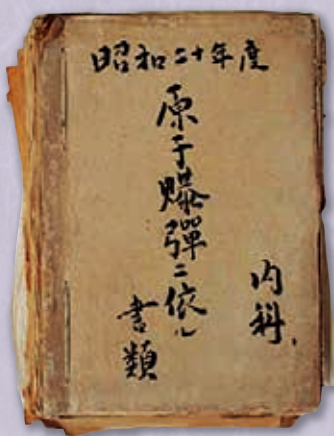 昭和二十年度
原子爆彈ニ依ル
書類
内科